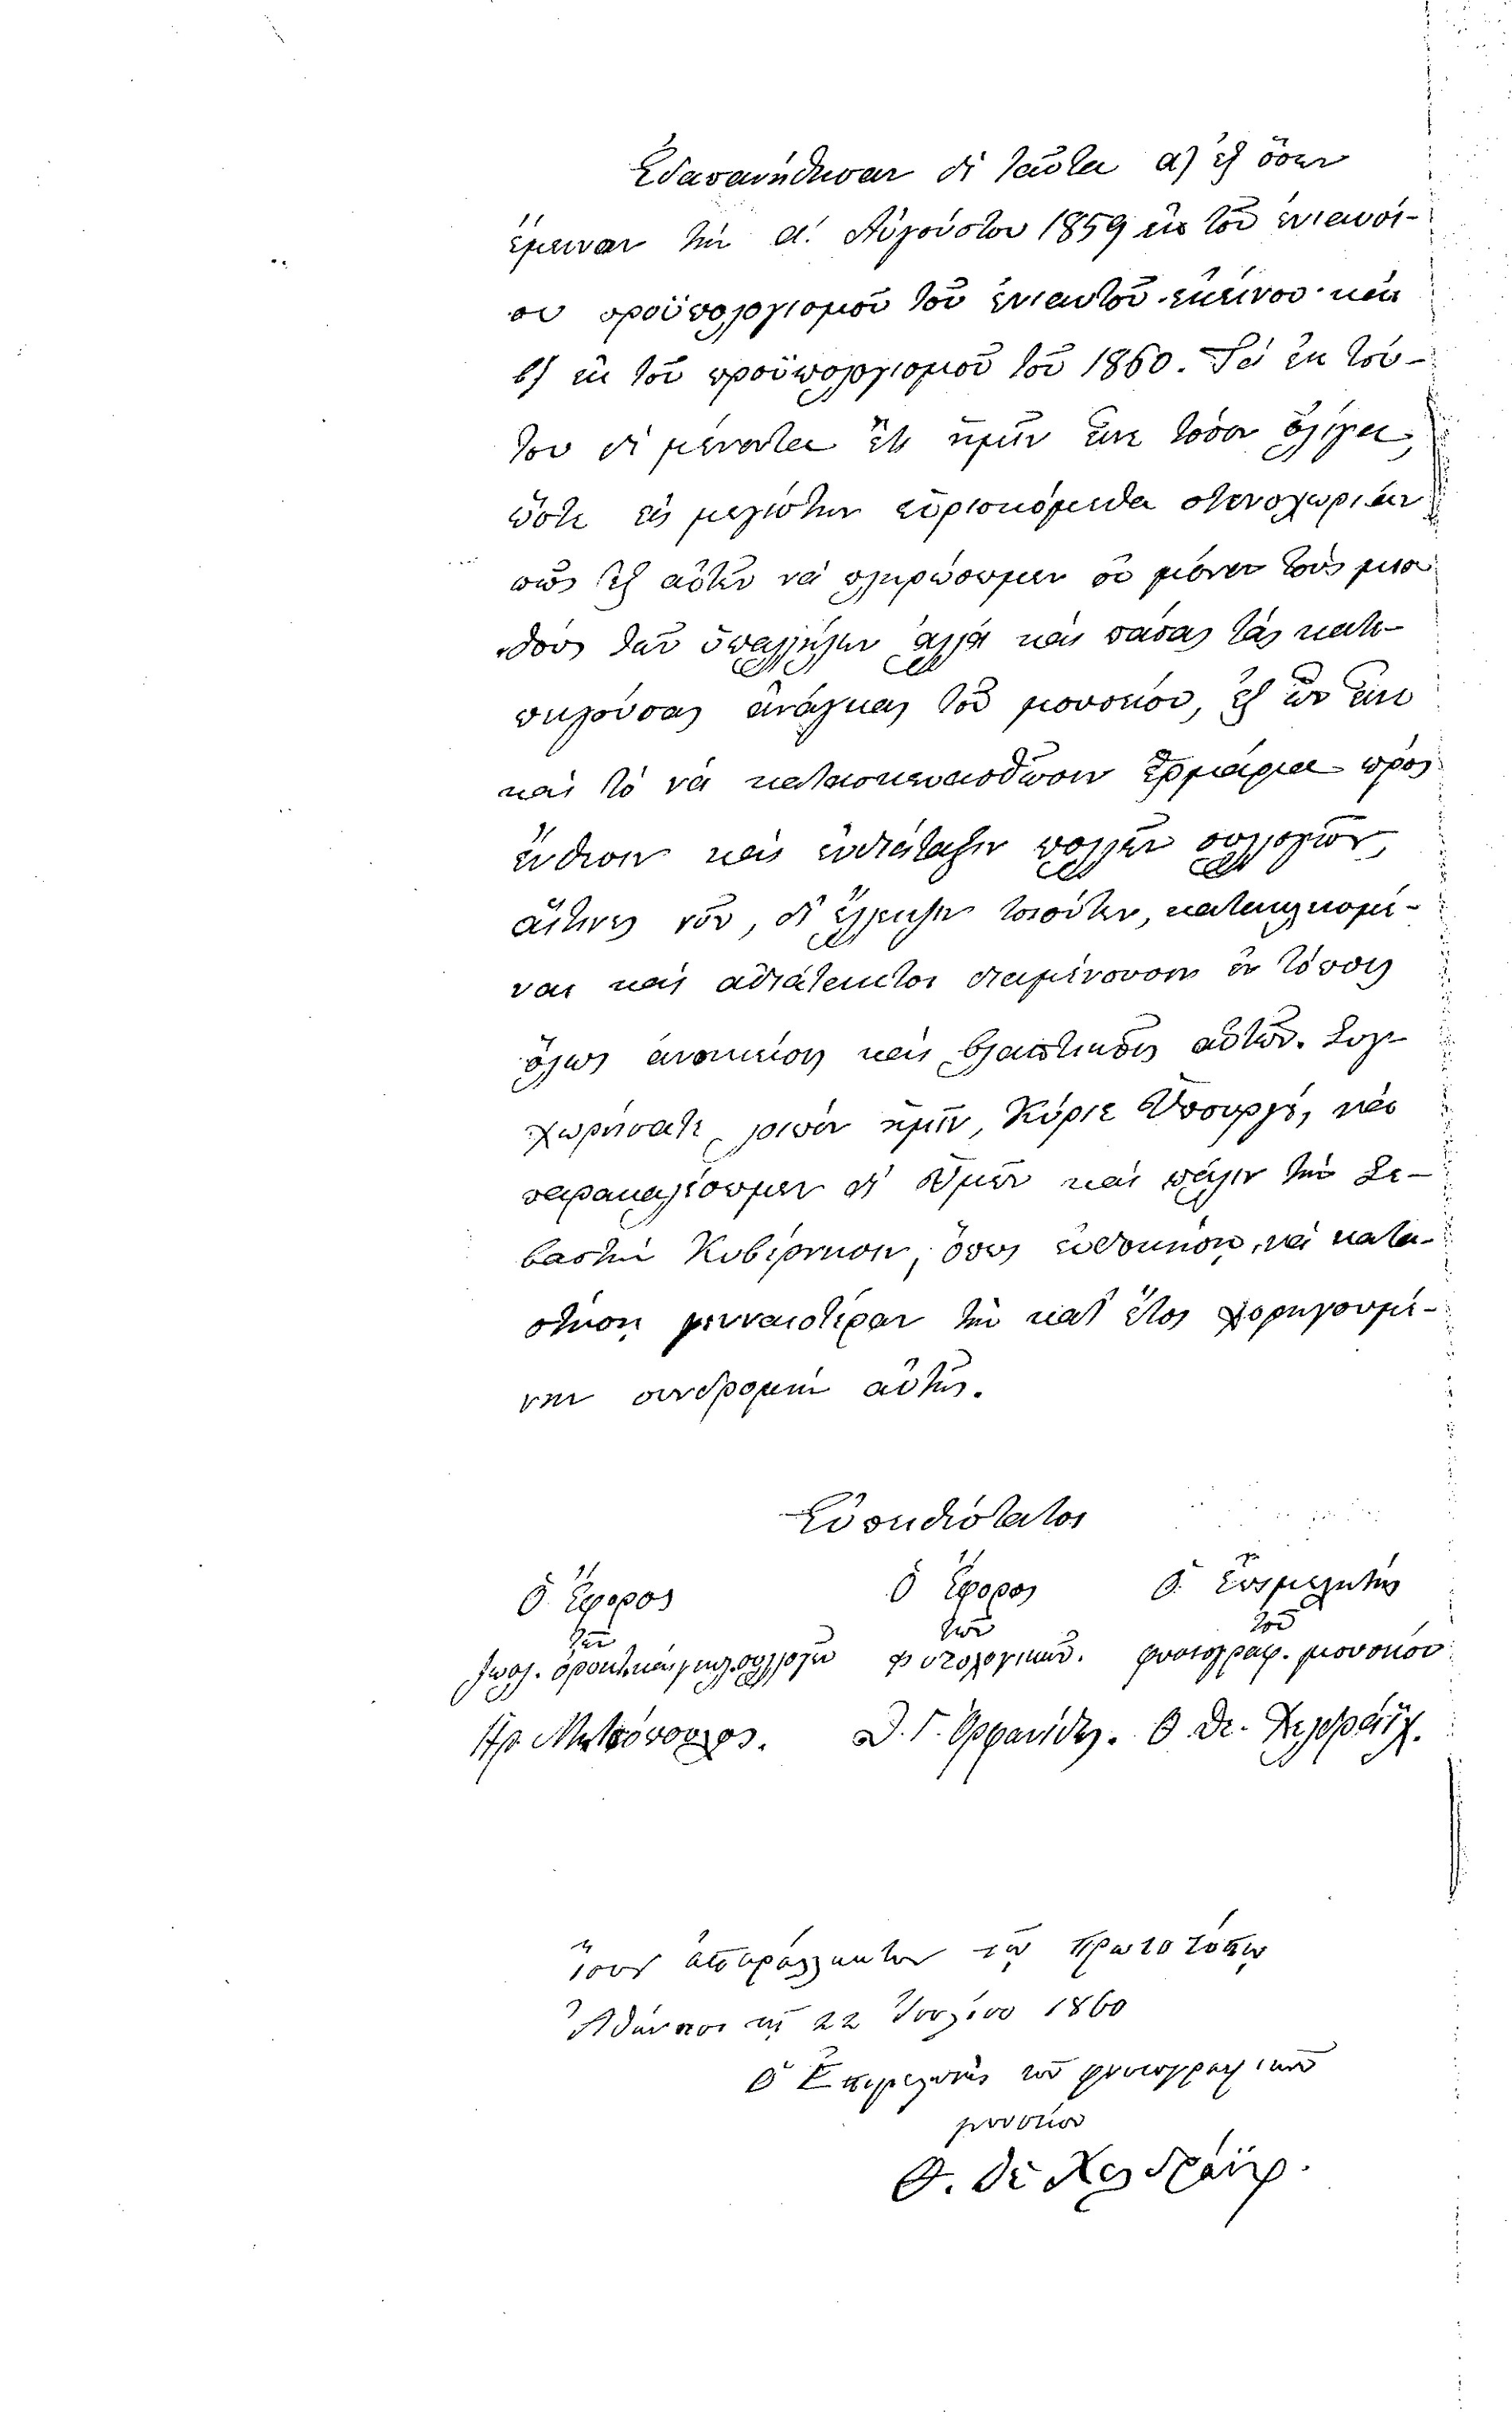 Ἐδαπανήθησαν δὲ ταῦτα α) ἐξ ὅσων
ἔμειναν τὴν α΄. Αὐγούστου 1859 ἐκ τοῦ ἐνιαυσί-
ου προϋπολογισμοῦ τοῦ ἐνιαυτοῦ ἐκείνου καὶ
β) ἐκ τοῦ προϋπολογισμοῦ τοῦ 1860. Τὰ ἐκ τού-
του δὲ μένοντα ἔτι ἡμῖν εἶνε τόσον ὀλίγα,
ὥστε εἰς μεγίστην εὑρισκόμεθα στενοχωρίαν
πῶς ἐξ αὐτῶν νὰ πληρώσωμεν οὐ μόνον τοὺς μισ
θοὺς τῶν ὑπαλλήλων ἀλλὰ καὶ πάσας τὰς κατε-
πειγούσας ἀνάγκας τοῦ μουσείου, ἐξ ὧν εἶνε
καὶ τὸ νὰ κατασκευασθῶσιν ἑρμάρια πρὸς
ἔνθεσιν καὶ ἐνδιάταξιν πολλῶν συλλογῶν,
αἵτινες νῦν, δι' ἔλλειψιν τοιούτων, κατακεκλεισμέ-
ναι καὶ ἀδιάτακτοι διαμένουσιν ἐν τόποις
ὅλως ἀνοικείοις καὶ βλαπτικοῖς αὐτῶν. Συγ
χωρήσατε λοιπὸν ἡμῖν, Κύριε Ὑπουργέ, νὰ
παρακαλέσωμεν δι' Ὑμῶν καὶ πάλιν τὴν Σε-
βαστὴν Κυβέρνησιν, ὅπως εὐδοκήσῃ νὰ κατα-
στήσῃ γενναιοτέραν τὴν κατ' ἔτος χορηγουμέ-
νην συνδρομὴν αὐτῆς.
Εὐπειθέστατοι
Ὁ Ἔφορος Ὁ Ἔφορος Ὁ Ἐπιμελητὴς
τῶν τῶν τοῦ
ζωολ. ὀρυκτ. καὶ συλλογῶν φυτολογικῶν. φυσιογραφ. μουσείου
Ἡρ. Μητσόπουλος. Θ. Γ. Ὀρφανίδης. Θ. Δε. Χελδράϊχ.
Ἴσον ἀπαράλλακτον τῷ πρωτοτύπῳ
Ἀθήνησι τῇ 22 Ἰουλίου 1860
Ὁ Ἐπιμελητὴς τοῦ φυσιογραφικοῦ
μουσείου
Θ. δὲ Χελδράϊχ.